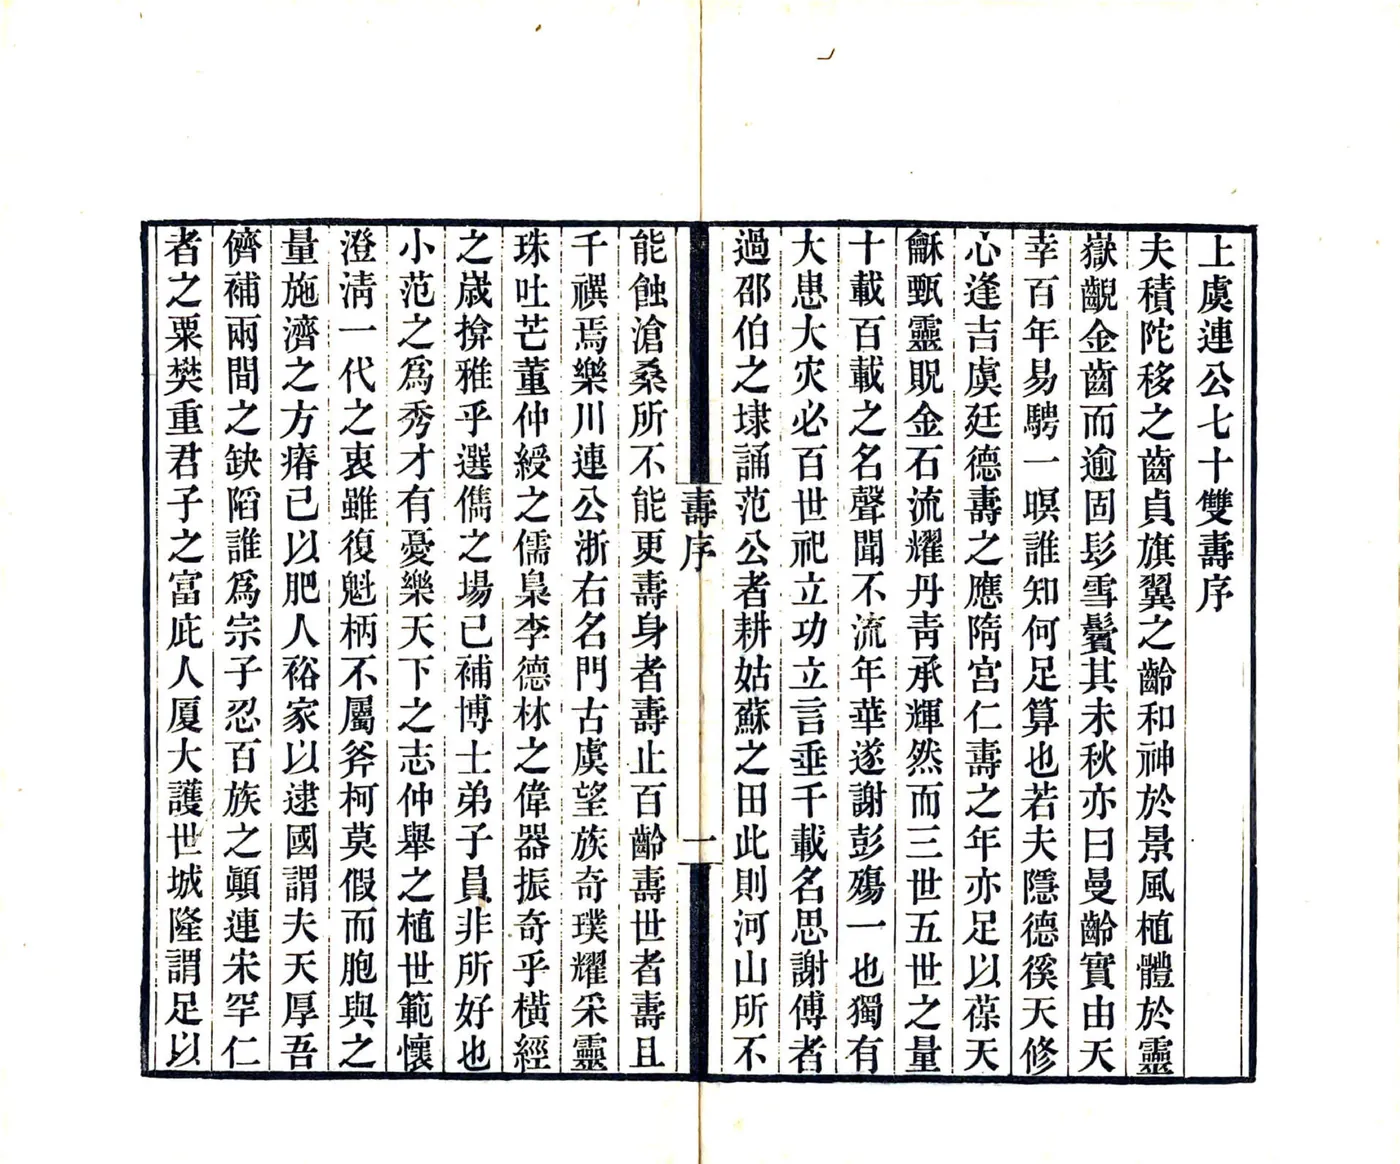 上虞連公七十雙壽序
夫積陀移之齒貞旗翼之齡和神於景風植體於靈
嶽齯金齒而逾固髟雪鬢其未秋亦曰曼齡實由天
幸百年易騁一暝誰知何足算也若夫隱德徯天修
心逢吉虞廷德壽之應隋宮仁壽之年亦足以葆天
龢甄靈貺金石流耀丹靑承輝然而三世五世之量
十載百載之名聲聞不流年華遂謝彭殤一也獨有
大患大灾必百世祀立功立言垂千載名思謝傅者
過邵伯之埭誦范公者耕姑蘇之田此則河山所不
壽序
一
能蝕滄桑所不能更壽身者壽止百齡壽世者壽且
千禩焉樂川連公浙右名門古虞望族奇璞耀采靈
珠吐芒董仲綬之儒梟李德林之偉器振奇乎橫經
之歲揜雅乎選儁之場已補博士弟子員非所好也
小范之爲秀才有憂樂天下之志仲舉之植世範懷
澄淸一代之衷雖復魁柄不屬斧柯莫假而胞與之
量施濟之方瘠己以肥人裕家以逮國謂夫天厚吾
儕補兩間之缺陷誰爲宗子忍百族之顚連宋罕仁
者之粟樊重君子之富庇人厦大護世城隆謂足以